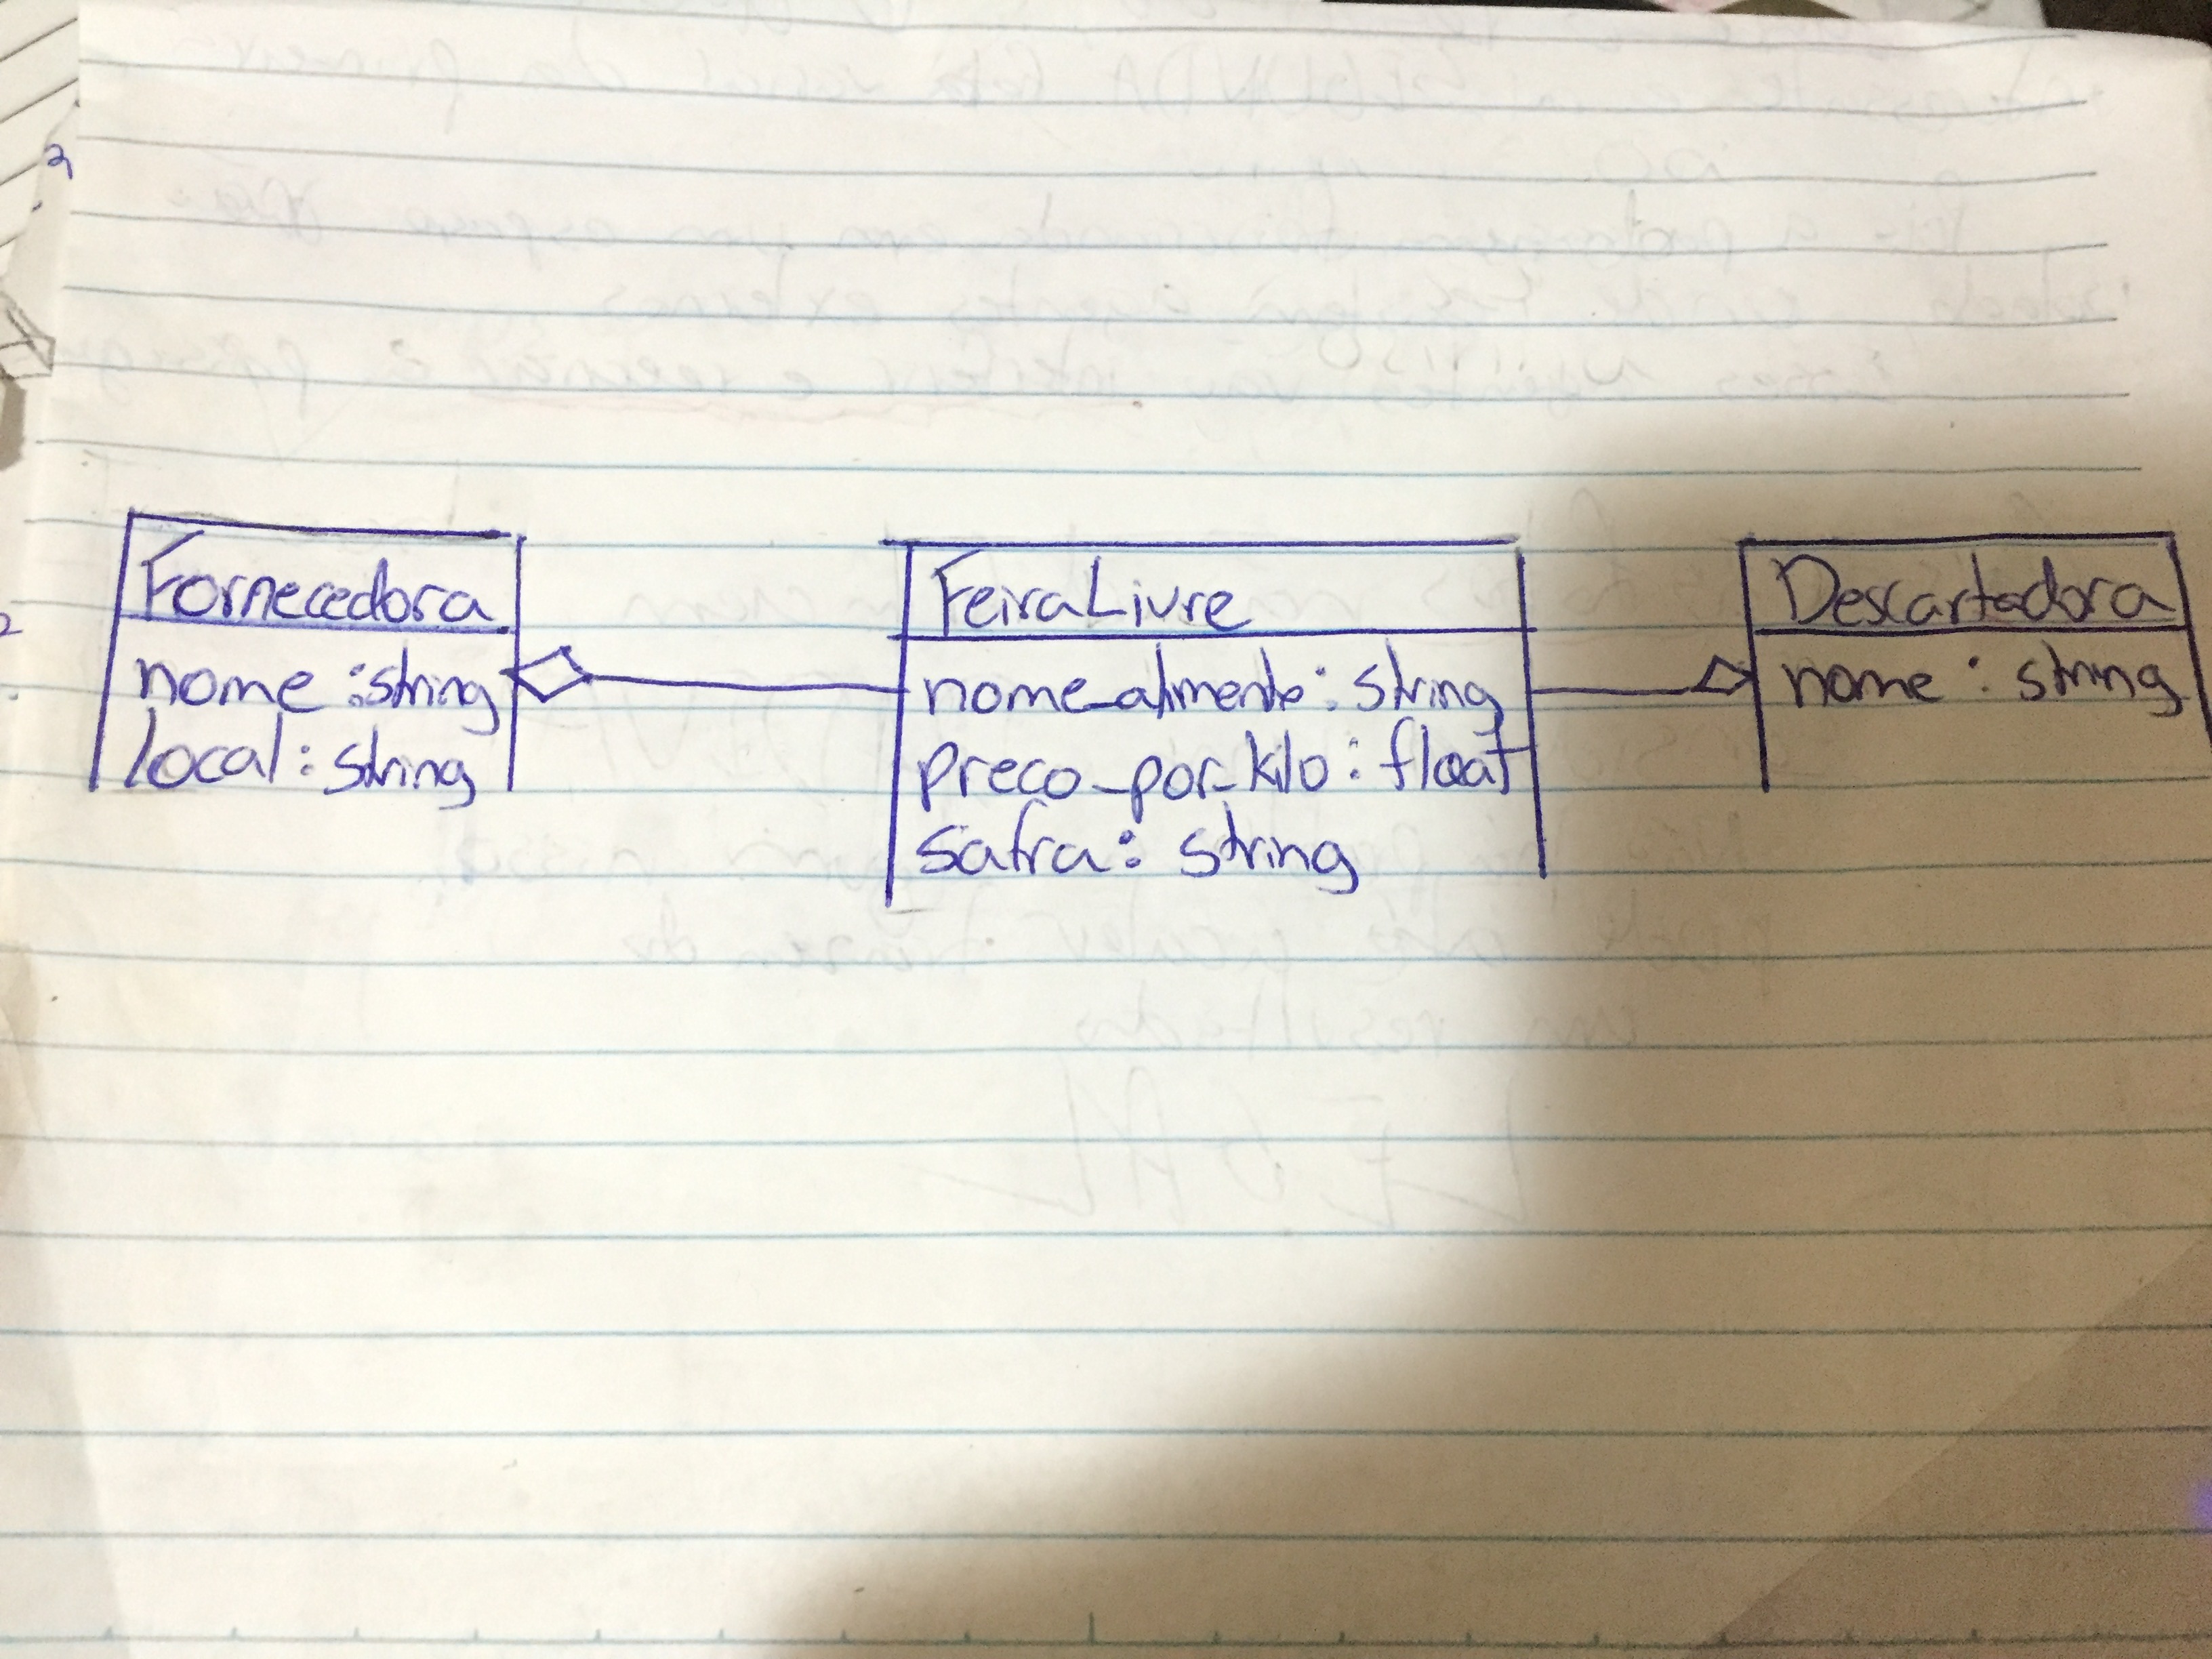 Fornecedora
nome : string
local : string
FeiraLivre
nome_alimento : string
preco_por_kilo : float
safra : string
Descartadora
nome : string